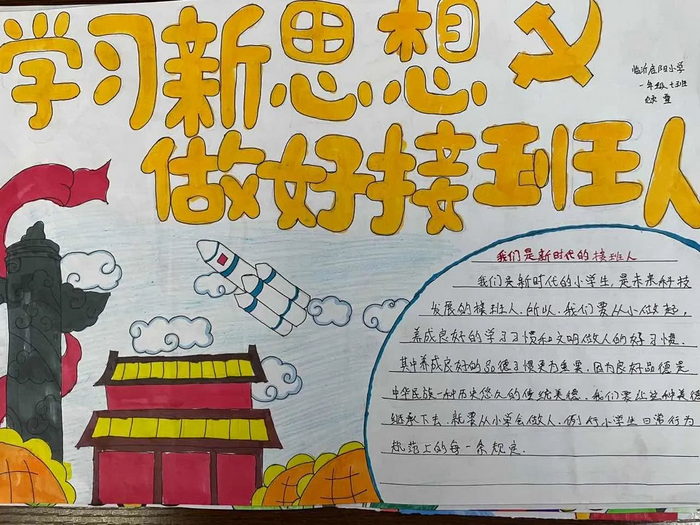 学习新思想
做好接班人
临沂庄阳小学
一年级七班
我们是新时代的接班人
我们是新时代的小学生,是未来科技
发展的接班人,所以,我们要从小做起,
养成良好的学习习惯和文明做人的好习惯.
其中养成良好的品德习惯更为重要,因为良好品德是
中华民族一种历史悠久的传统美德,我们要让这种美德
继承下去,就要从小学会做人,例行小学生日常行为
规范上的每一条规定.